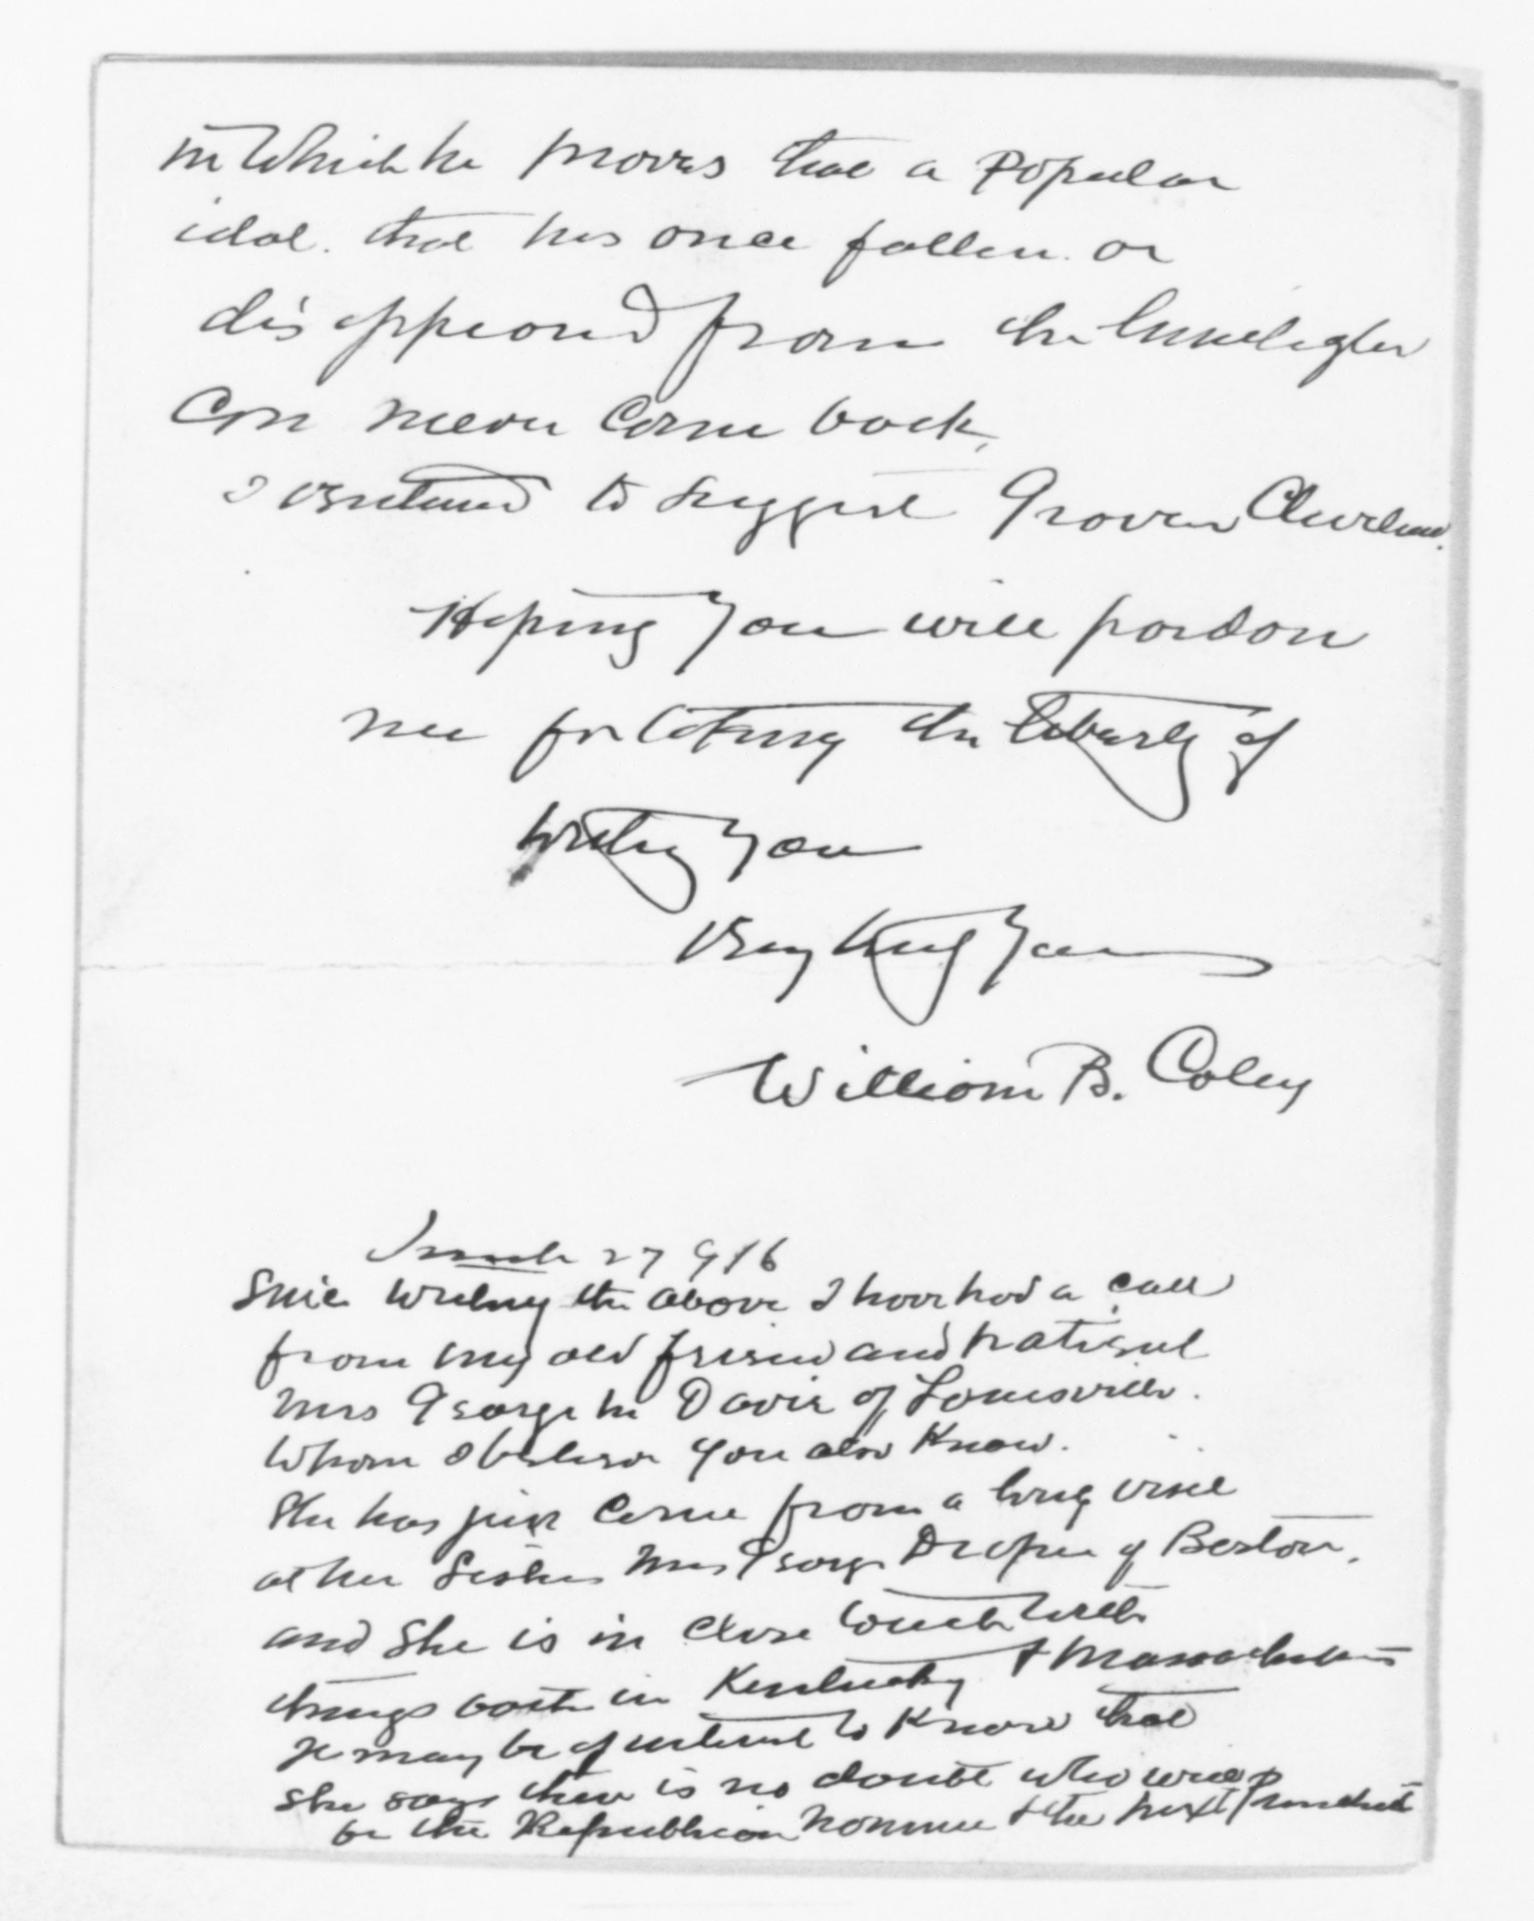 in which he proves that a popular
idol. that has once fallen. or
disappeared from the limelight
can never come back.
I ventured to suggest Grover Cleveland.
Hoping you will pardon
me for taking the liberty of
writing you
Very truly yours
William B. Coley
March 27 916
Since writing the above I have had a call
from my old friend and patient
Mrs George M Davie of Louisville.
Whom I believe you also know.
She has just come from a long visit
at her sisters Mrs George Draper of Boston.
and she is in close touch with
things both in Kentucky & Massachusetts
It may be of interest to know that
she says there is no doubt who will
be the Republican nominee & the next President